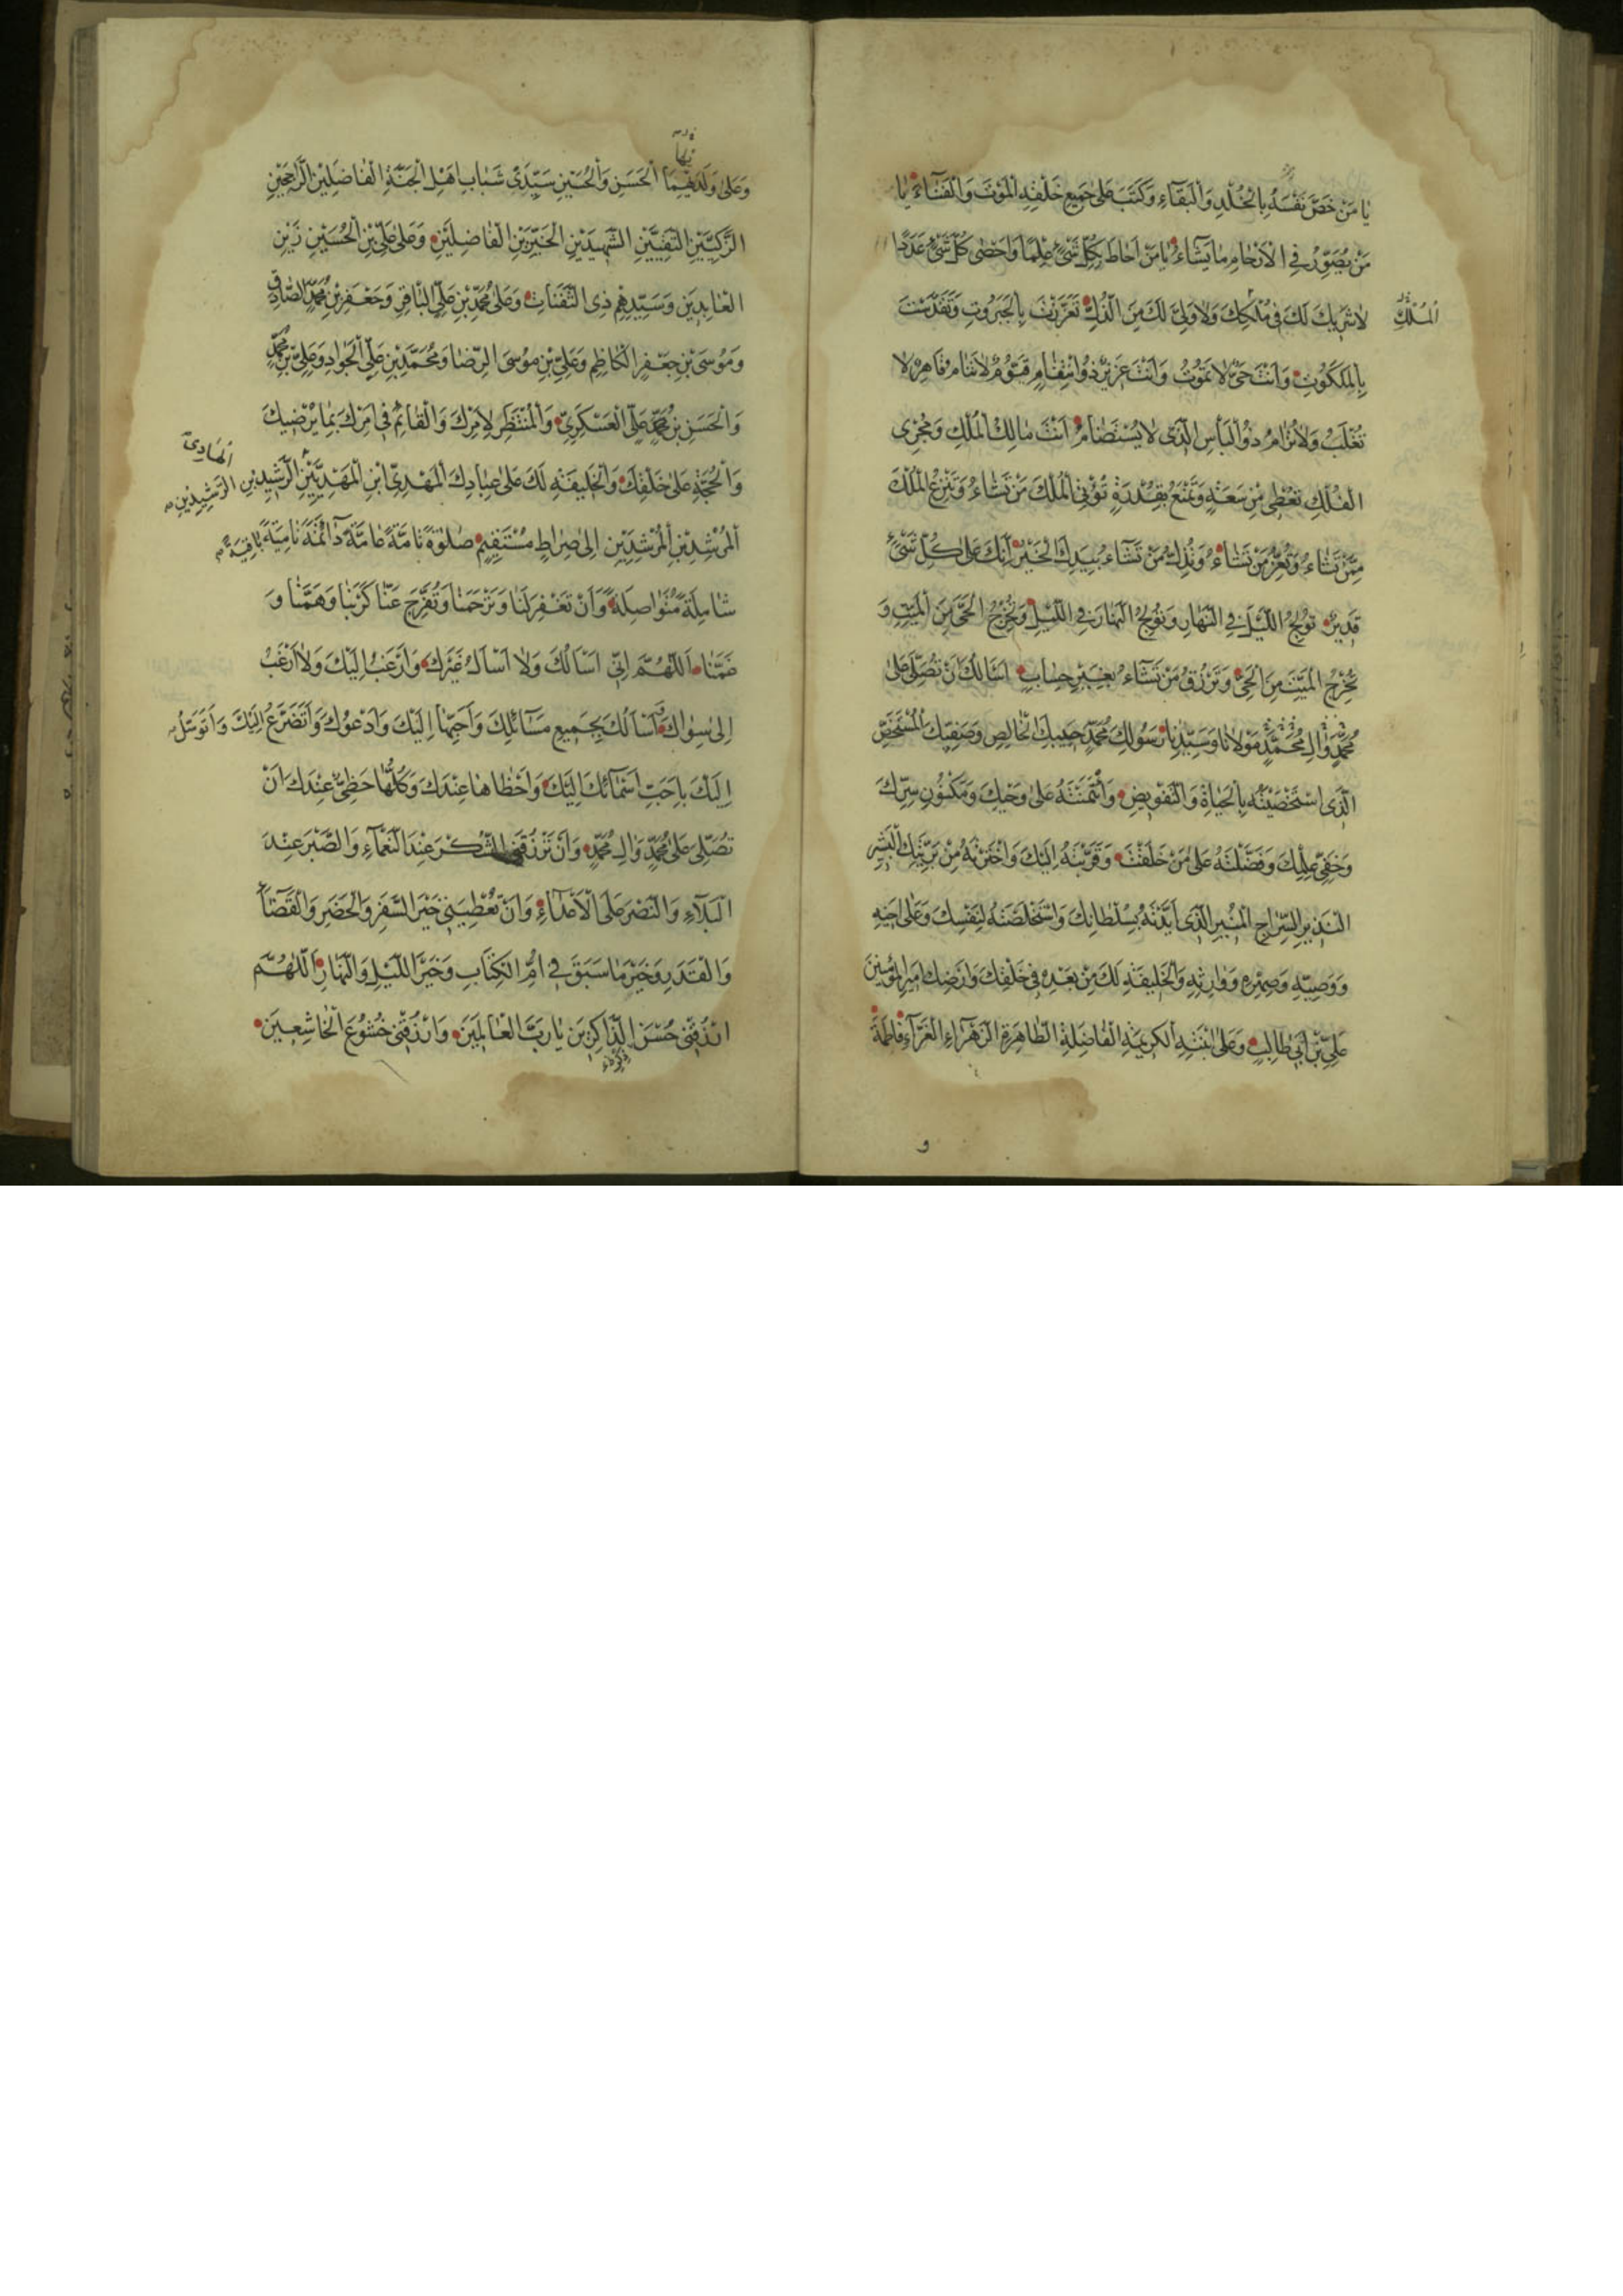 يا مَنْ خَصَّ نَفْسَهُ بِالْخُلْدِ وَالْبَقَآءِ وَكَتَبَ عَلى جَميعِ خَلْقِهِ الْمَوْتَ وَالْفَنآءَ يا
مَنْ يُصَوِّرُ فِي الْاَرْحامِ ما يَشآءُ يا مَنْ اَحاطَ بِكُلِّ شَىْءٍ عِلْمًا وَاَحْصى كُلَّ شَىْءٍ عَدَدًا
لا شَريكَ لَكَ فى مُلْكِكَ وَلا وَلِىَّ لَكَ مِنَ الذُّلِّ تَعَزَّزْتَ بِالْجَبَرُوتِ وَتَقَدَّسْتَ
الْمُلْكِ
بِالْمَلَكُوتِ وَاَنْتَ حَىٌّ لا تَمُوتُ وَاَنْتَ عَزيزٌ ذُو انْتِقامٍ قَيُّومٌ لا تَنامُ قاهِرٌ لا
تُغْلَبُ وَلا تُرامُ ذُو الْبَأْسِ الَّذى لا يُسْتَضامُ اَنْتَ مالِكُ الْمُلْكِ وَمُجْرِى
الْفُلْكِ تُعْطى مِنْ سَعَةٍ وَتَمْنَعُ بِقُدْرَةٍ تُؤْتِى الْمُلْكَ مَنْ تَشآءُ وَتَنْزِعُ الْمُلْكَ
مِمَّنْ تَشآءُ وَتُعِزُّ مَنْ تَشآءُ وَتُذِلُّ مَنْ تَشآءُ بِيَدِكَ الْخَيْرُ اِنَّكَ عَلى كُلِّ شَىْءٍ
قَديرٌ تُولِجُ اللَّيْلَ فِي النَّهارِ وَتُولِجُ النَّهارَ فِي اللَّيْلِ وَتُخْرِجُ الْحَىَّ مِنَ الْمَيِّتِ وَ
تُخْرِجُ الْمَيِّتَ مِنَ الْحَىِّ وَتَرْزُقُ مَنْ تَشآءُ بِغَيْرِ حِسابٍ اَسْأَلُكَ اَنْ تُصَلِّىَ عَلى
مُحَمَّدٍ وَالِ مُحَمَّدٍ مَوْلانا وَسَيِّدِنا رَسُولِكَ مُحَمَّدٍ حَبيبِكَ الْخالِصِ وَصَفِيِّكَ الْمُسْتَخَصِّ
الَّذى اسْتَخْصَصْتَهُ بِالْحَياةِ وَالتَّفْويضِ وَائْتَمَنْتَهُ عَلى وَحْيِكَ وَمَكْنُونِ سِرِّكَ
وَخَفِىِّ عِلْمِكَ وَفَضَّلْتَهُ عَلى مَنْ خَلَقْتَ وَقَرَّبْتَهُ اِلَيْكَ وَاخْتَرْتَهُ مِنْ بَرِيَّتِكَ الْبَشيرِ
النَّذيرِ السِّراجِ الْمُنيرِ الَّذى اَيَّدْتَهُ بِسُلْطانِكَ وَاسْتَخْلَصْتَهُ لِنَفْسِكَ وَعَلى اَخيهِ
وَوَصِيِّهِ وَصِهْرِهِ وَوارِثِهِ وَالْخَليفَةِ لَكَ مِنْ بَعْدِهِ فى خَلْقِكَ وَاَرْضِكَ اَميرِ الْمُؤْمِنينَ
عَلِىِّ بْنِ اَبي طالِبٍ وَعَلى ابْنَتِهِ الْكَريمَةِ الْفاضِلَةِ الطّاهِرَةِ الزَّهْرآءِ الْغَرّآءِ فاطِمَةَ
و
وَعَلى وَلَدَيْهِمَا الْحَسَنِ وَالْحُسَيْنِ سَيِّدَىْ شَبابِ اَهْلِ الْجَنَّةِ الْفاضِلَيْنِ الرّاجِحَيْنِ
الزَّكِيَّيْنِ التَّقِيَّيْنِ الشَّهيدَيْنِ الْخَيِّرَيْنِ الْفاضِلَيْنِ وَعَلى عَلِىِّ بْنِ الْحُسَيْنِ زَيْنِ
الْعابِدينَ وَسَيِّدِهِمْ ذِى الثَّفَناتِ وَعَلى مُحَمَّدِ بْنِ عَلِىٍّ الْباقِرِ وَجَعْفَرِ بْنِ مُحَمَّدٍ الصّادِقِ
وَمُوسَى بْنِ جَعْفَرٍ الْكاظِمِ وَعَلِىِّ بْنِ مُوسَى الرِّضا وَمُحَمَّدِ بْنِ عَلِىٍّ الْجَوادِ وَعَلِىِّ بْنِ مُحَمَّدٍ
الْهادى
وَالْحَسَنِ بْنِ عَلِىٍّ الْعَسْكَرِىِّ وَالْمُنْتَظِرِ لِاَمْرِكَ وَالْقآئِمِ فى اَمْرِكَ بِما يُرْضيكَ
وَالْحُجَّةِ عَلى خَلْقِكَ وَالْخَليفَةِ لَكَ عَلى عِبادِكَ الْمَهْدِىِّ ابْنِ الْمَهْدِيّينَ الرَّشيدِ بْنِ الرَّشيدينَ
الْمُرْشِدِ بْنِ الْمُرْشِدينَ اِلى صِراطٍ مُسْتَقيمٍ صَلوةً تامَّةً عامَّةً دآئِمَةً نامِيَةً باقِيَةً
شامِلَةً مُتَواصِلَةً وَاَنْ تَغْفِرَ لَنا وَتَرْحَمَنا وَتُفَرِّجَ عَنّا كَرْبَنا وَهَمَّنا وَ
غَمَّنا اَللّهُمَّ اِنّى اَسْأَلُكَ وَلا اَسْأَلُ غَيْرَكَ وَاَرْغَبُ اِلَيْكَ وَلا اَرْغَبُ
اِلى سِواكَ اَسْأَلُكَ بِجَميعِ مَسآئِلِكَ وَاَحَبِّها اِلَيْكَ وَاَدْعُوكَ وَاَتَضَرَّعُ اِلَيْكَ وَاَتَوَسَّلُ
اِلَيْكَ بِاَحَبِّ اَسْمآئِكَ اِلَيْكَ وَاَحْظاها عِنْدَكَ وَكُلُّها حَظِىٌّ عِنْدَكَ اَنْ
تُصَلِّىَ عَلى مُحَمَّدٍ وَالِ مُحَمَّدٍ وَاَنْ تَرْزُقَنِى الشُّكْرَ عِنْدَ النَّعْمآءِ وَالصَّبْرَ عِنْدَ
الْبَلآءِ وَالنَّصْرَ عَلَى الْاَعْدآءِ وَاَنْ تُعْطِيَنى خَيْرَ السَّفَرِ وَالْحَضَرِ وَالْقَضآءِ
وَالْقَدَرِ وَخَيْرَ ما سَبَقَ فى اُمِّ الْكِتابِ وَخَيْرَ اللَّيْلِ وَالنَّهارِ اَللّهُمَّ
ارْزُقْنى حُسْنَ الذّاكِرينَ يا رَبَّ الْعالَمينَ وَارْزُقْنى خُشُوعَ الْخاشِعينَ